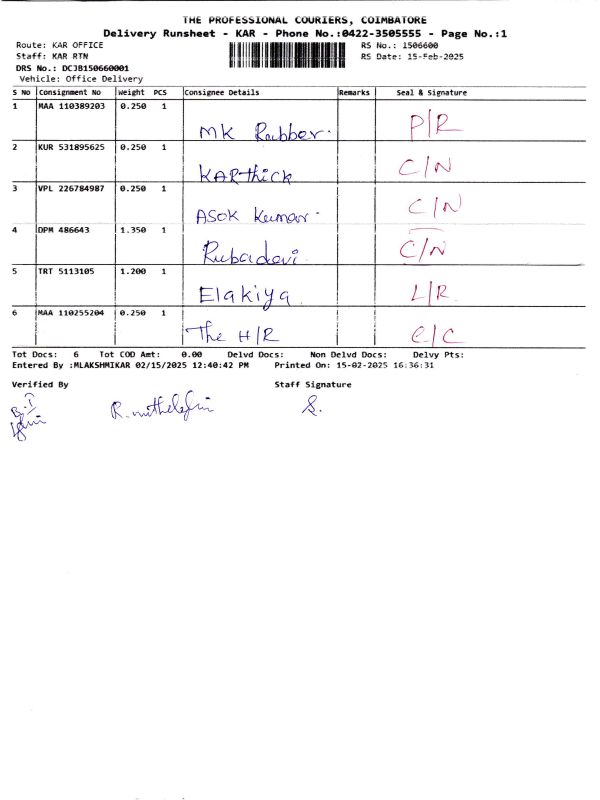 THE PROFESSIONAL COURIERS, COIMBATORE
Delivery Runsheet - KAR - Phone No.:0422-3505555 - Page No.:1
Route: KAR OFFICE RS No.: 1506600
Staff: KAR RTN RS Date: 15-Feb-2025
DRS No.: DCJB150660001
Vehicle: Office Delivery
S No Consignment No Weight PCS Consignee Details Remarks Seal & Signature
1 MAA 110389203 0.250 1
MK Rubber. P/R
2 KUR 531895625 0.250 1
KARthick C/N
3 VPL 226784987 0.250 1
ASOK Kumar. C/N
4 DPM 486643 1.350 1
Rubadevi. C/N
5 TRT 5113105 1.200 1
Elakiya L/R
6 MAA 110255204 0.250 1
The H/R C/C
Tot Docs: 6 Tot COD Amt: 0.00 Delvd Docs: Non Delvd Docs: Delvy Pts:
Entered By :MLAKSHMIKAR 02/15/2025 12:40:42 PM Printed On: 15-02-2025 16:36:31
Verified By Staff Signature